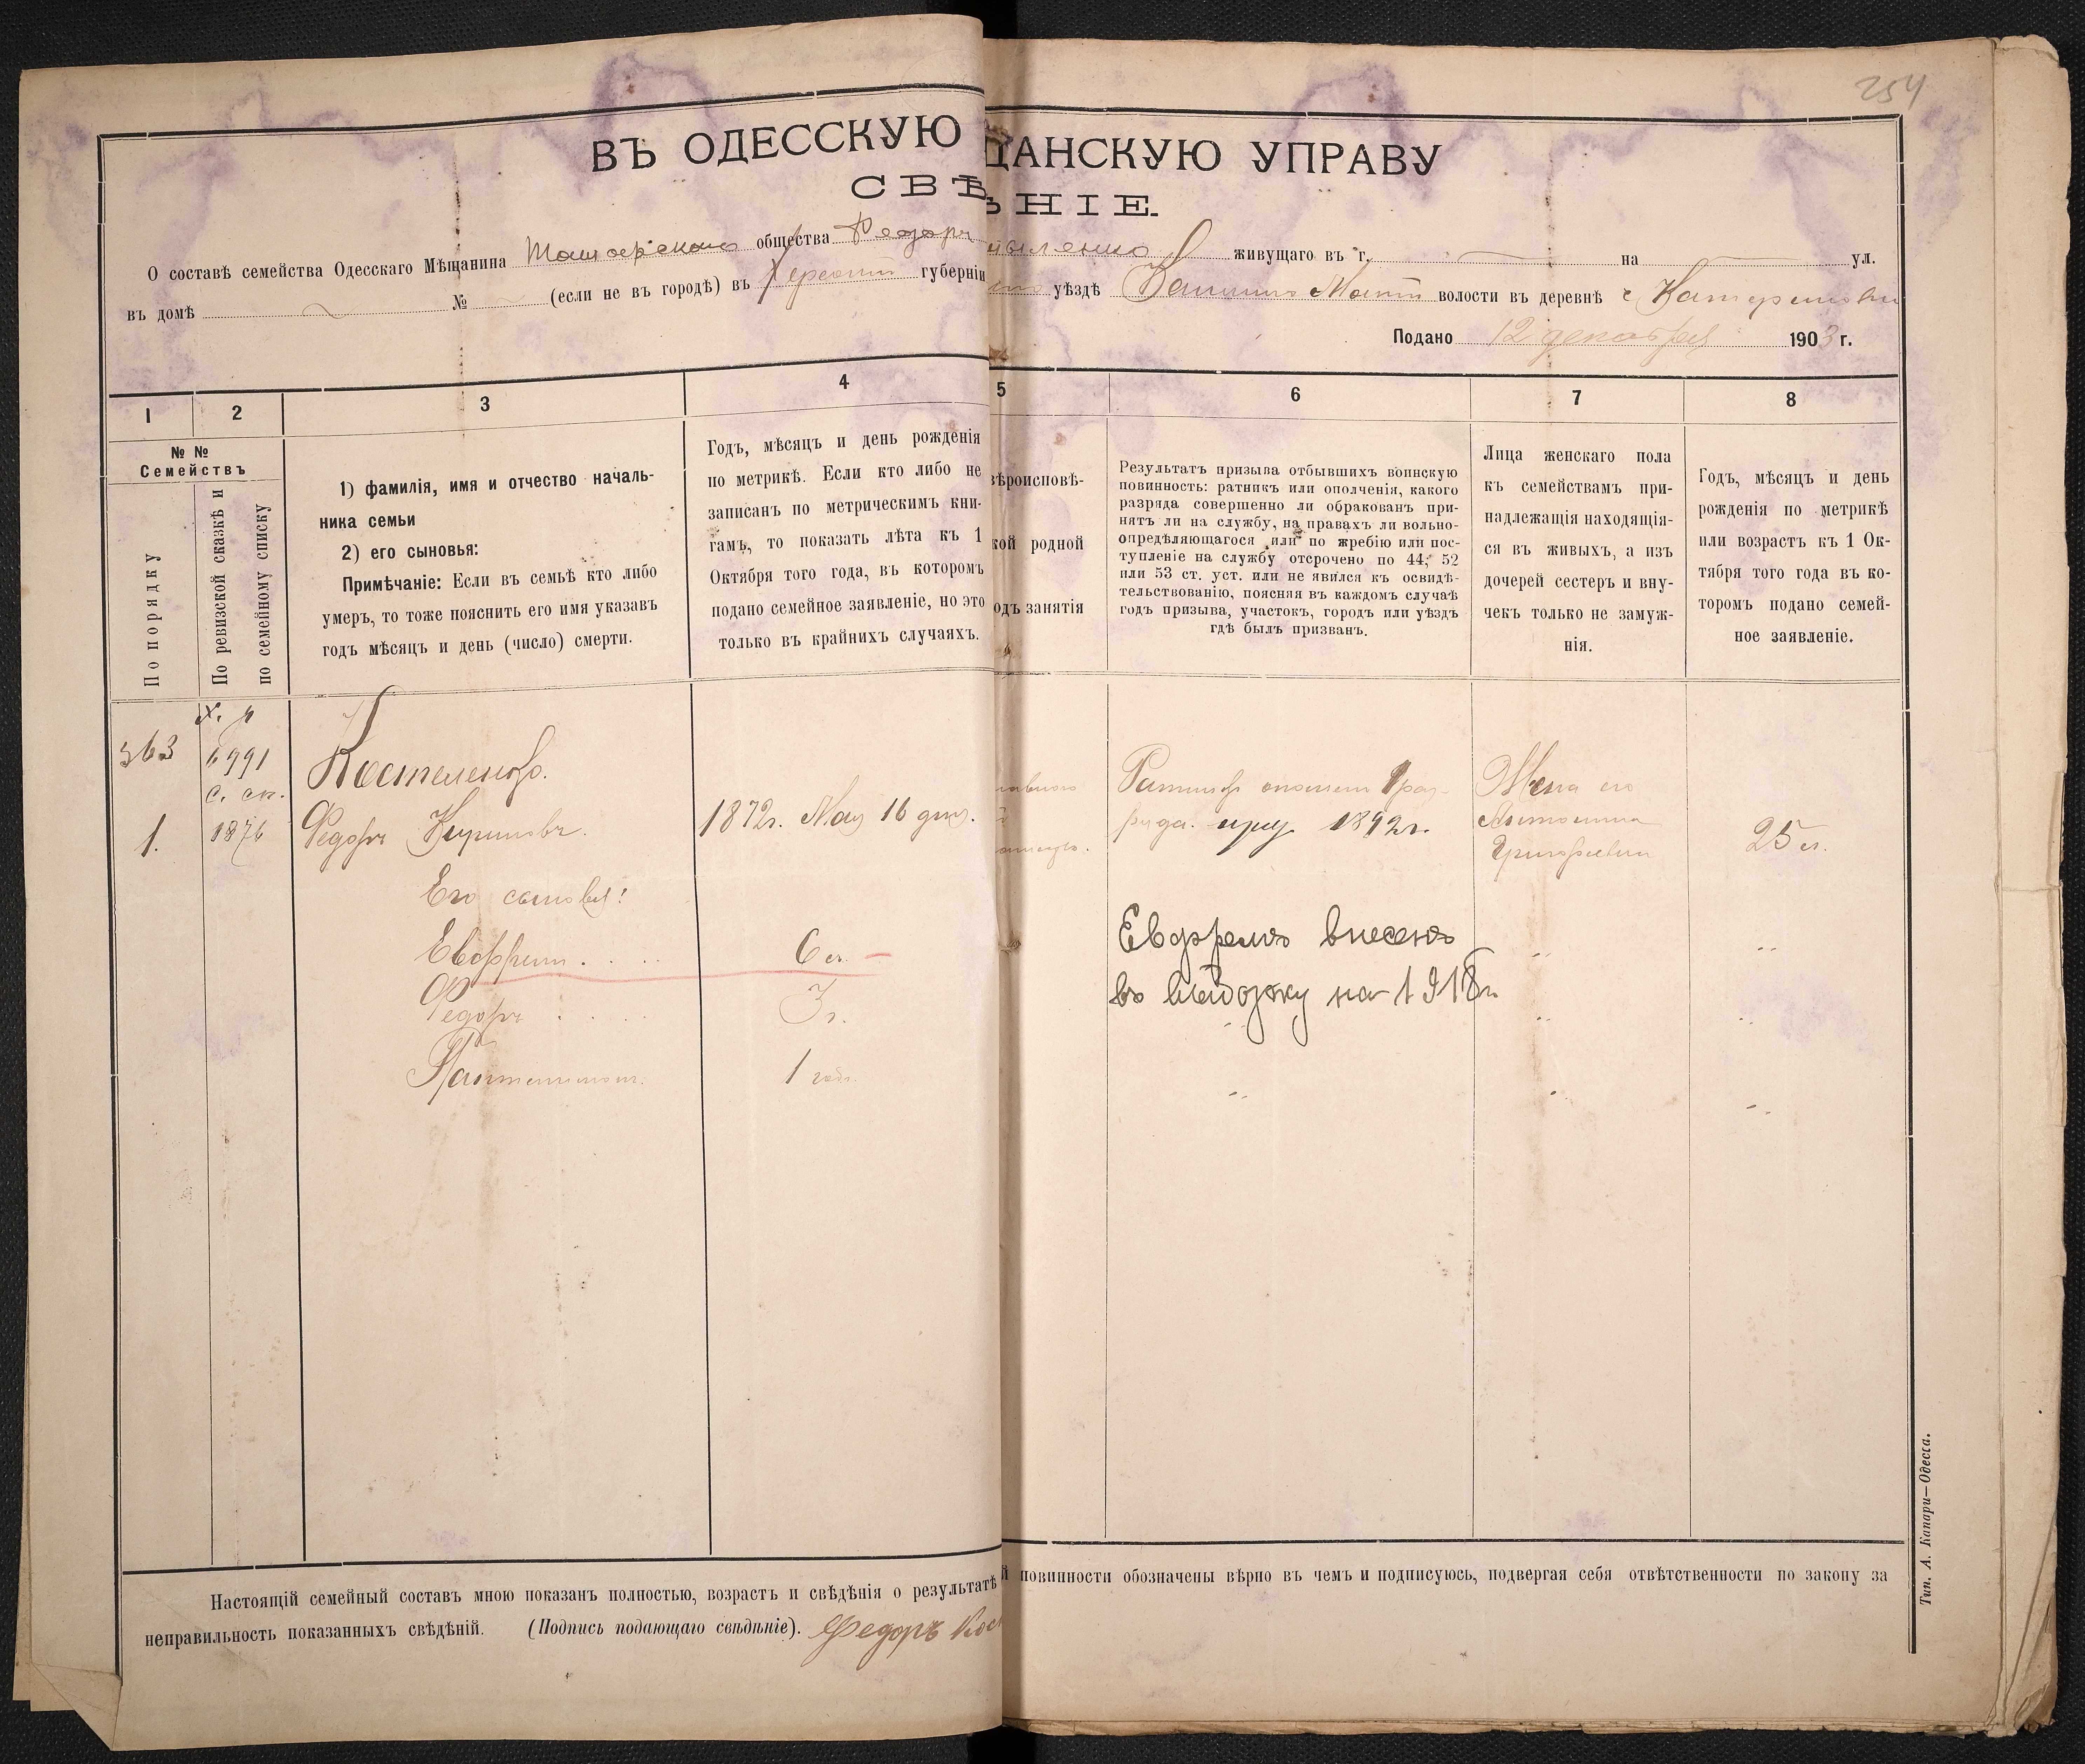 254
ВЪ ОДЕССКУЮ ЩАНСКУЮ УПРАВУ
СВѢ ѢНІЕ.
О составѣ семейства Одесскаго Мѣщанина общества Федоръ живущаго въ г. на ул.
въ домѣ № (если не въ городѣ) въ Херсон губерніи уѣздѣ волости въ деревнѣ с. Катериновки
Подано 12 декабря 1903 г.
1 2 3 4 5 6 7 8
№ №
Семействъ
По порядку
По ревизской сказкѣ и
по семейному списку
1) фамилія, имя и отчество началь-
ника семьи
2) его сыновья:
Примѣчаніе: Если въ семьѣ кто либо
умеръ, то тоже пояснить его имя указавъ
годъ мѣсяцъ и день (число) смерти.
Годъ, мѣсяцъ и день рожденія
по метрикѣ. Если кто либо не
записанъ по метрическимъ кни-
гамъ, то показать лѣта къ 1
Октября того года, въ которомъ
подано семейное заявленіе, но это
только въ крайнихъ случаяхъ.
вѣроисповѣ-
кой родной
одъ занятія
Результатъ призыва отбывшихъ воинскую
повинность: ратникъ или ополченія, какого
разряда совершенно ли обракованъ при-
нятъ ли на службу, на правахъ ли вольно-
опредѣляющагося или по жребію или пос-
тупленіе на службу отсрочено по 44, 52
или 53 ст. уст. или не явился къ освидѣ-
тельствованію, поясняя въ каждомъ случаѣ
годъ призыва, участокъ, городъ или уѣздъ
гдѣ былъ призванъ.
Лица женскаго пола
къ семействамъ при-
надлежащія находящія-
ся въ живыхъ, а изъ
дочерей сестеръ и вну-
чекъ только не замуж-
нія.
Годъ, мѣсяцъ и день
рожденія по метрикѣ
или возрастъ къ 1 Ок-
тября того года въ ко-
торомъ подано семей-
ное заявленіе.
363 6991 Костеленко.
с. сп.
1. 1876 Федоръ Кириловъ. 1872г. Мая 16 дня. Ратникъ ополчен 1 раз-
ряда. приз. 1892г. Жена его
Антонина
Григорьевна 25 л.
Его сыновья:
Евфрем . . . . 6 л. Евфремъ внесенъ
въ выборку на 1918г.
Федоръ . . . . 3 г.
Пантелимон. 1 годъ.
Настоящій семейный составъ мною показанъ полностью, возрастъ и свѣдѣнія о результатѣ й повинности обозначены вѣрно въ чемъ и подписуюсь, подвергая себя отвѣтственности по закону за
неправильность показанныхъ свѣдѣній. (Подпись подающаго свѣдѣніе). Федоръ Кос
Тип. А. Капари—Одесса.